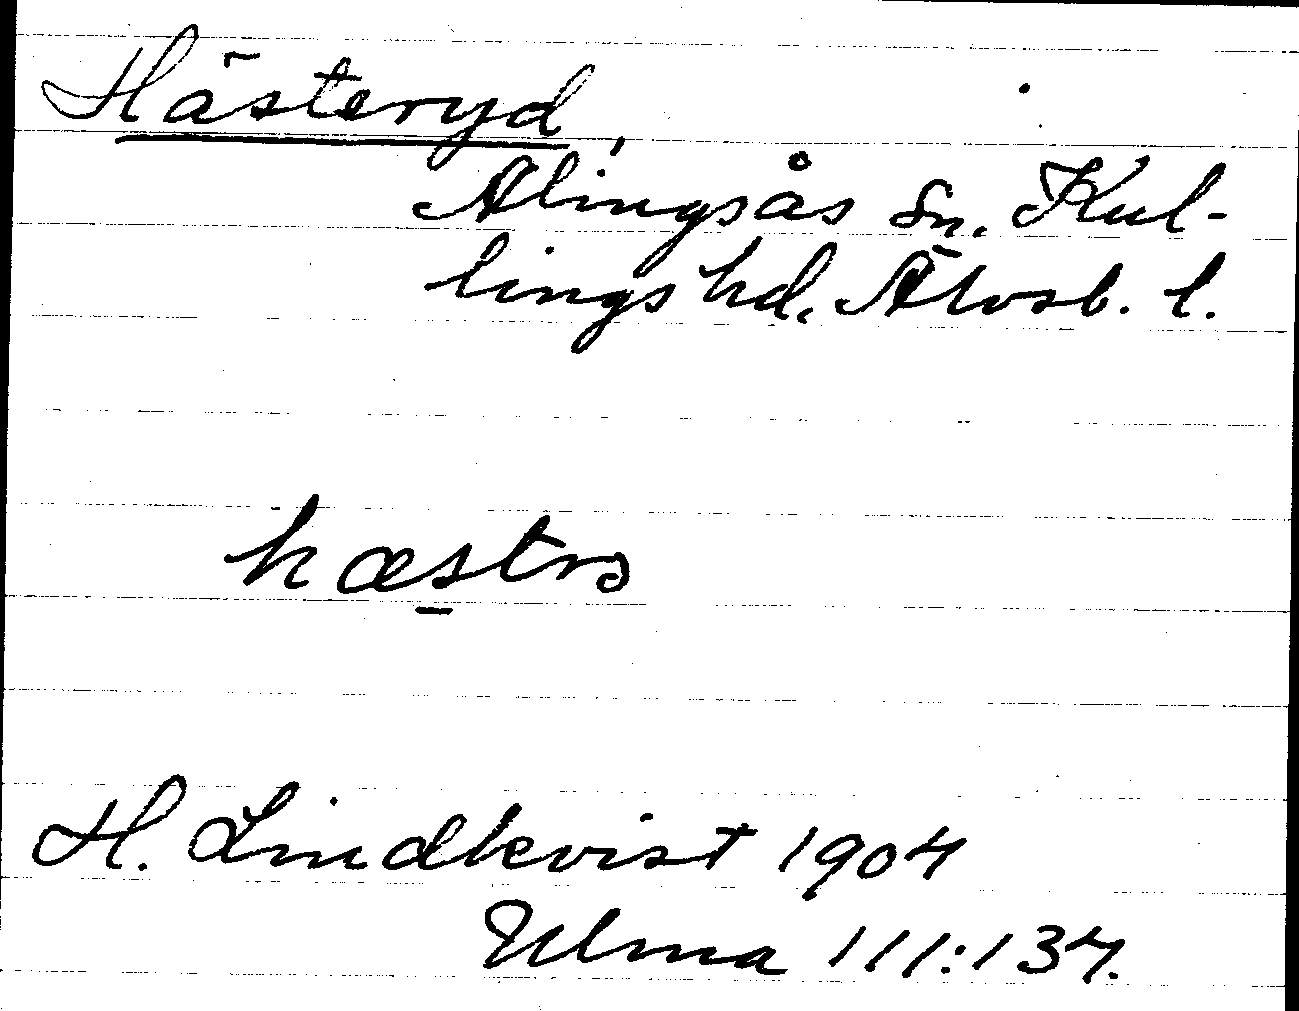 Hästeryd,
Alingsås sn. Kul-
lings hd. Älvsb. l.
hæstrs
H. Lindkvist 1904
Ulma 111:137.